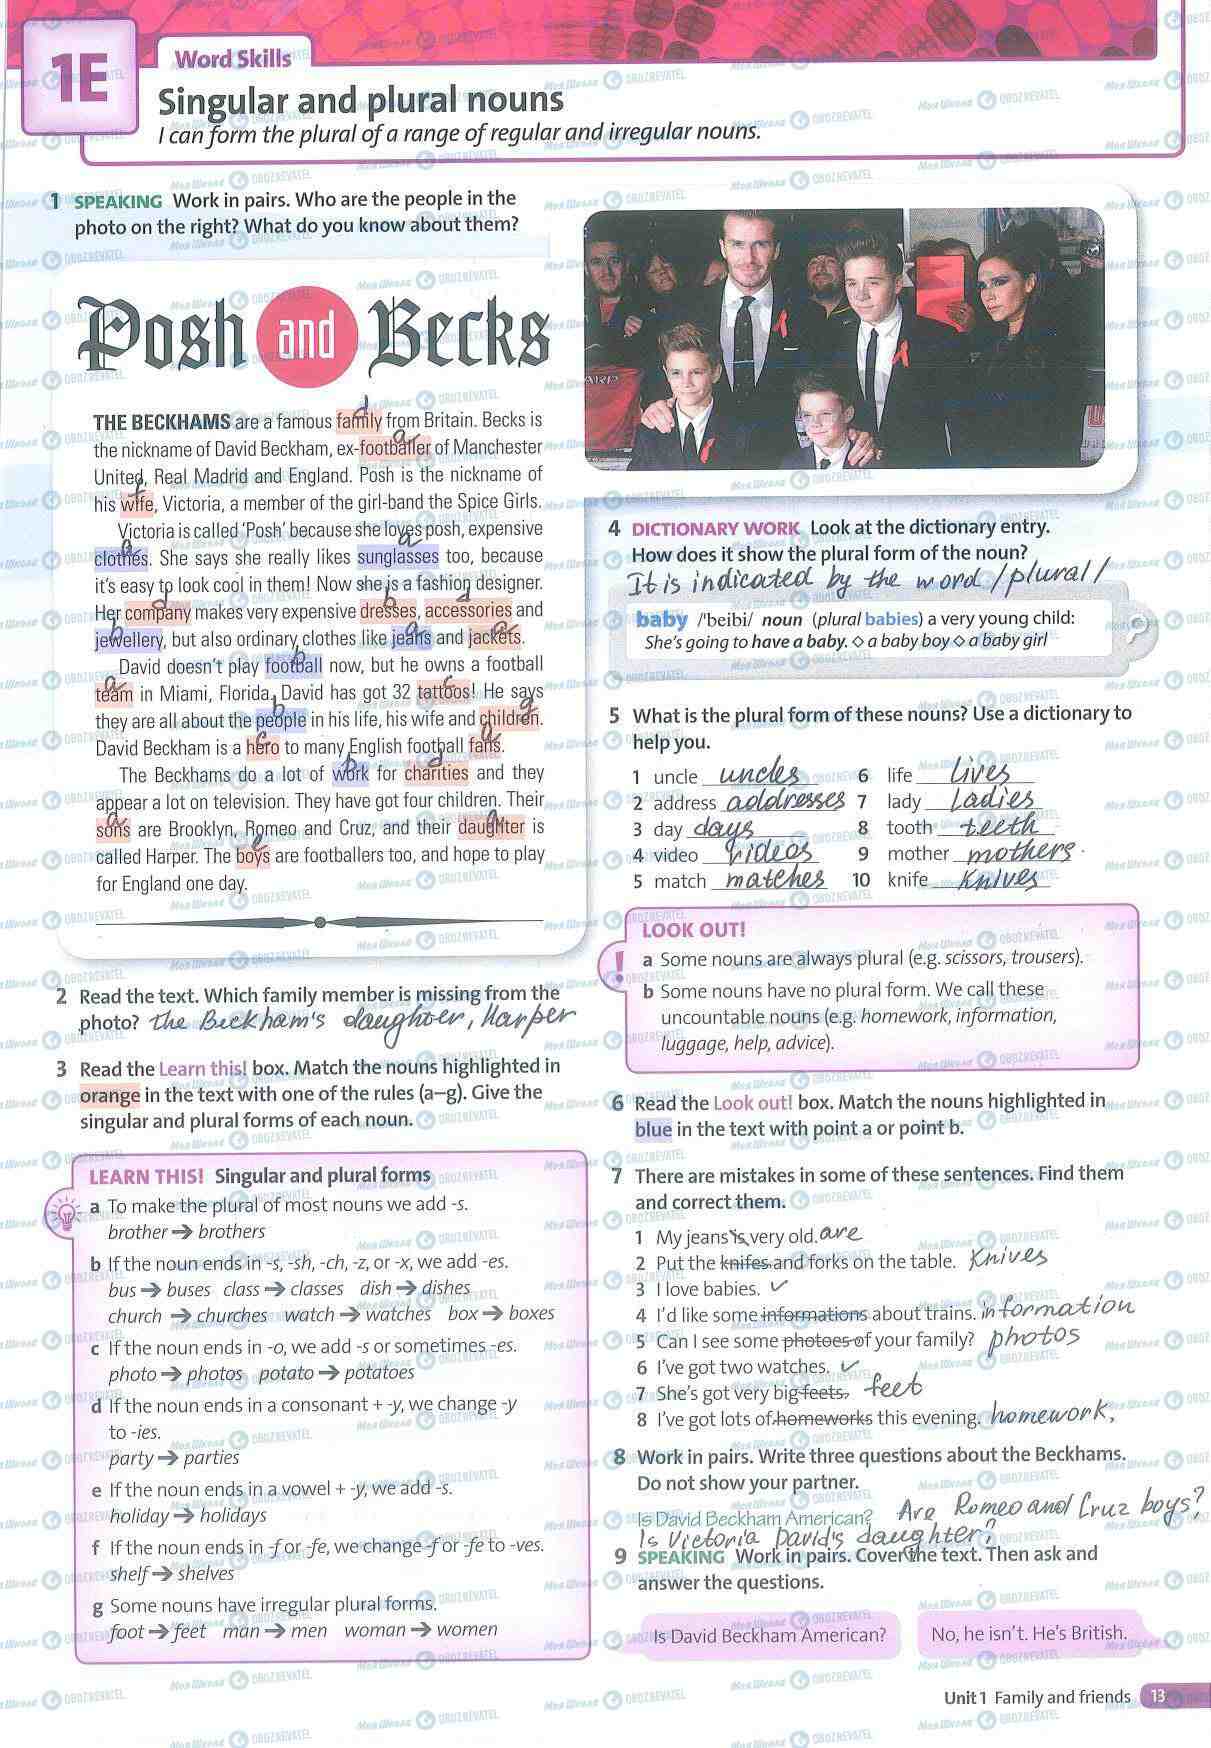 1E
Word Skills
Singular and plural nouns
I can form the plural of a range of regular and irregular nouns.
1 SPEAKING Work in pairs. Who are the people in the
photo on the right? What do you know about them?
Posh and Becks
THE BECKHAMS are a famous family from Britain. Becks is
the nickname of David Beckham, ex-footballer of Manchester
United, Real Madrid and England. Posh is the nickname of
his wife, Victoria, a member of the girl-band the Spice Girls.
Victoria is called 'Posh' because she loves posh, expensive
clothes. She says she really likes sunglasses too, because
it's easy to look cool in them! Now she is a fashion designer.
Her company makes very expensive dresses, accessories and
jewellery, but also ordinary clothes like jeans and jackets.
David doesn't play football now, but he owns a football
team in Miami, Florida. David has got 32 tattoos! He says
they are all about the people in his life, his wife and children.
David Beckham is a hero to many English football fans.
The Beckhams do a lot of work for charities and they
appear a lot on television. They have got four children. Their
sons are Brooklyn, Romeo and Cruz, and their daughter is
called Harper. The boys are footballers too, and hope to play
for England one day.
2 Read the text. Which family member is missing from the
photo? the Beckham's daughter, Harper
3 Read the Learn this! box. Match the nouns highlighted in
orange in the text with one of the rules (a–g). Give the
singular and plural forms of each noun.
LEARN THIS! Singular and plural forms
a To make the plural of most nouns we add -s.
brother ➔ brothers
b If the noun ends in -s, -sh, -ch, -z, or -x, we add -es.
bus ➔ buses class ➔ classes dish ➔ dishes
church ➔ churches watch ➔ watches box ➔ boxes
c If the noun ends in -o, we add -s or sometimes -es.
photo ➔ photos potato ➔ potatoes
d If the noun ends in a consonant + -y, we change -y
to -ies.
party ➔ parties
e If the noun ends in a vowel + -y, we add -s.
holiday ➔ holidays
f If the noun ends in -f or -fe, we change -f or -fe to -ves.
shelf ➔ shelves
g Some nouns have irregular plural forms.
foot ➔ feet man ➔ men woman ➔ women
4 DICTIONARY WORK Look at the dictionary entry.
How does it show the plural form of the noun?
It is indicated by the word /plural/
baby /'beibi/ noun (plural babies) a very young child:
She's going to have a baby. ◇ a baby boy ◇ a baby girl
5 What is the plural form of these nouns? Use a dictionary to
help you.
1 uncle uncles 6 life lives
2 address addresses 7 lady ladies
3 day days 8 tooth teeth
4 video videos 9 mother mothers
5 match matches 10 knife knives
LOOK OUT!
a Some nouns are always plural (e.g. scissors, trousers).
b Some nouns have no plural form. We call these
uncountable nouns (e.g. homework, information,
luggage, help, advice).
6 Read the Look out! box. Match the nouns highlighted in
blue in the text with point a or point b.
7 There are mistakes in some of these sentences. Find them
and correct them.
1 My jeans is very old. are
2 Put the knifes and forks on the table. knives
3 I love babies. ✓
4 I'd like some informations about trains. information
5 Can I see some photoes of your family? photos
6 I've got two watches. ✓
7 She's got very big feets. feet
8 I've got lots of homeworks this evening. homework,
8 Work in pairs. Write three questions about the Beckhams.
Do not show your partner.
Is David Beckham American? Are Romeo and Cruz boys?
Is Victoria David's daughter?
9 SPEAKING Work in pairs. Cover the text. Then ask and
answer the questions.
Is David Beckham American?
No, he isn't. He's British.
Unit 1 Family and friends 13